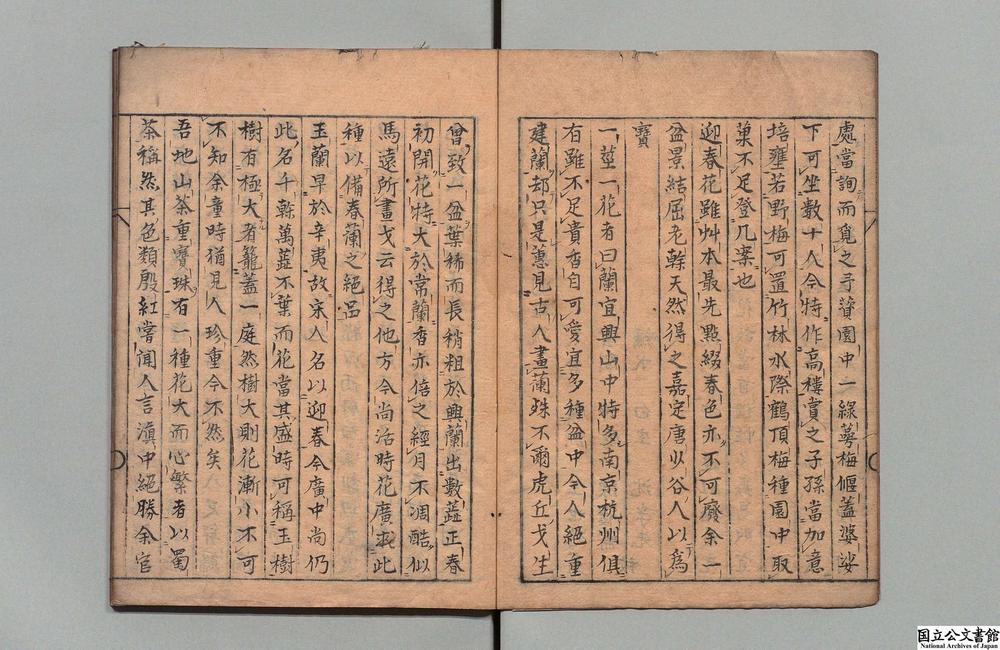 處當詢而覓之予簣園中一綠萼梅偃蓋婆娑
下可坐數十人今特作高樓賞之子孫當加意
培壅若野梅可置竹林水際鶴頂梅種園中取
菓不足登几案也
迎春花雖艸本最先點綴春色亦不可廢余一
盆景結屈老榦天然得之嘉定唐少谷人以爲
寶
一莖一花者曰蘭宜興山中特多南京杭州俱
有雖不足貴香自可愛宜多種盆中今人絕重
建蘭却只是蕙見古人畫蘭殊不爾虎丘戈生
曾致一盆葉稀而長稍粗於興蘭出數蕋正春
初開花特大於常蘭香亦倍之經月不凋酷似
馬遠所畫戈云得之他方今尚活時花廣求此
種以備春蘭之絕品
玉蘭早於辛夷故宋人名以迎春今廣中尚仍
此名千榦萬蕋不葉而花當其盛時可稱玉樹
樹有極大者籠蓋一庭然樹大則花漸小不可
不知余童時猶見人珍重今不然矣
吾地山茶重寶珠有一種花大而心繁者以蜀
茶稱然其色類殷紅嘗聞人言滇中絕勝余官
国立公文書館
National Archives of Japan